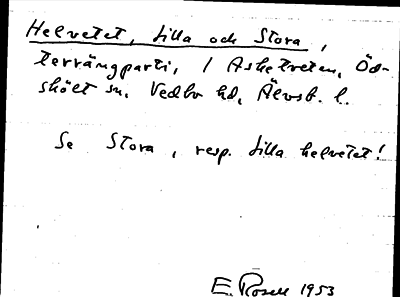 Helvetet, Lilla och Stora,
terrängparti, / Asketreten, Öd-
skölt sn, Vedbo hd, Älvsb. l.
Se Stora, resp. Lilla helvetet!
E. Rosell 1953